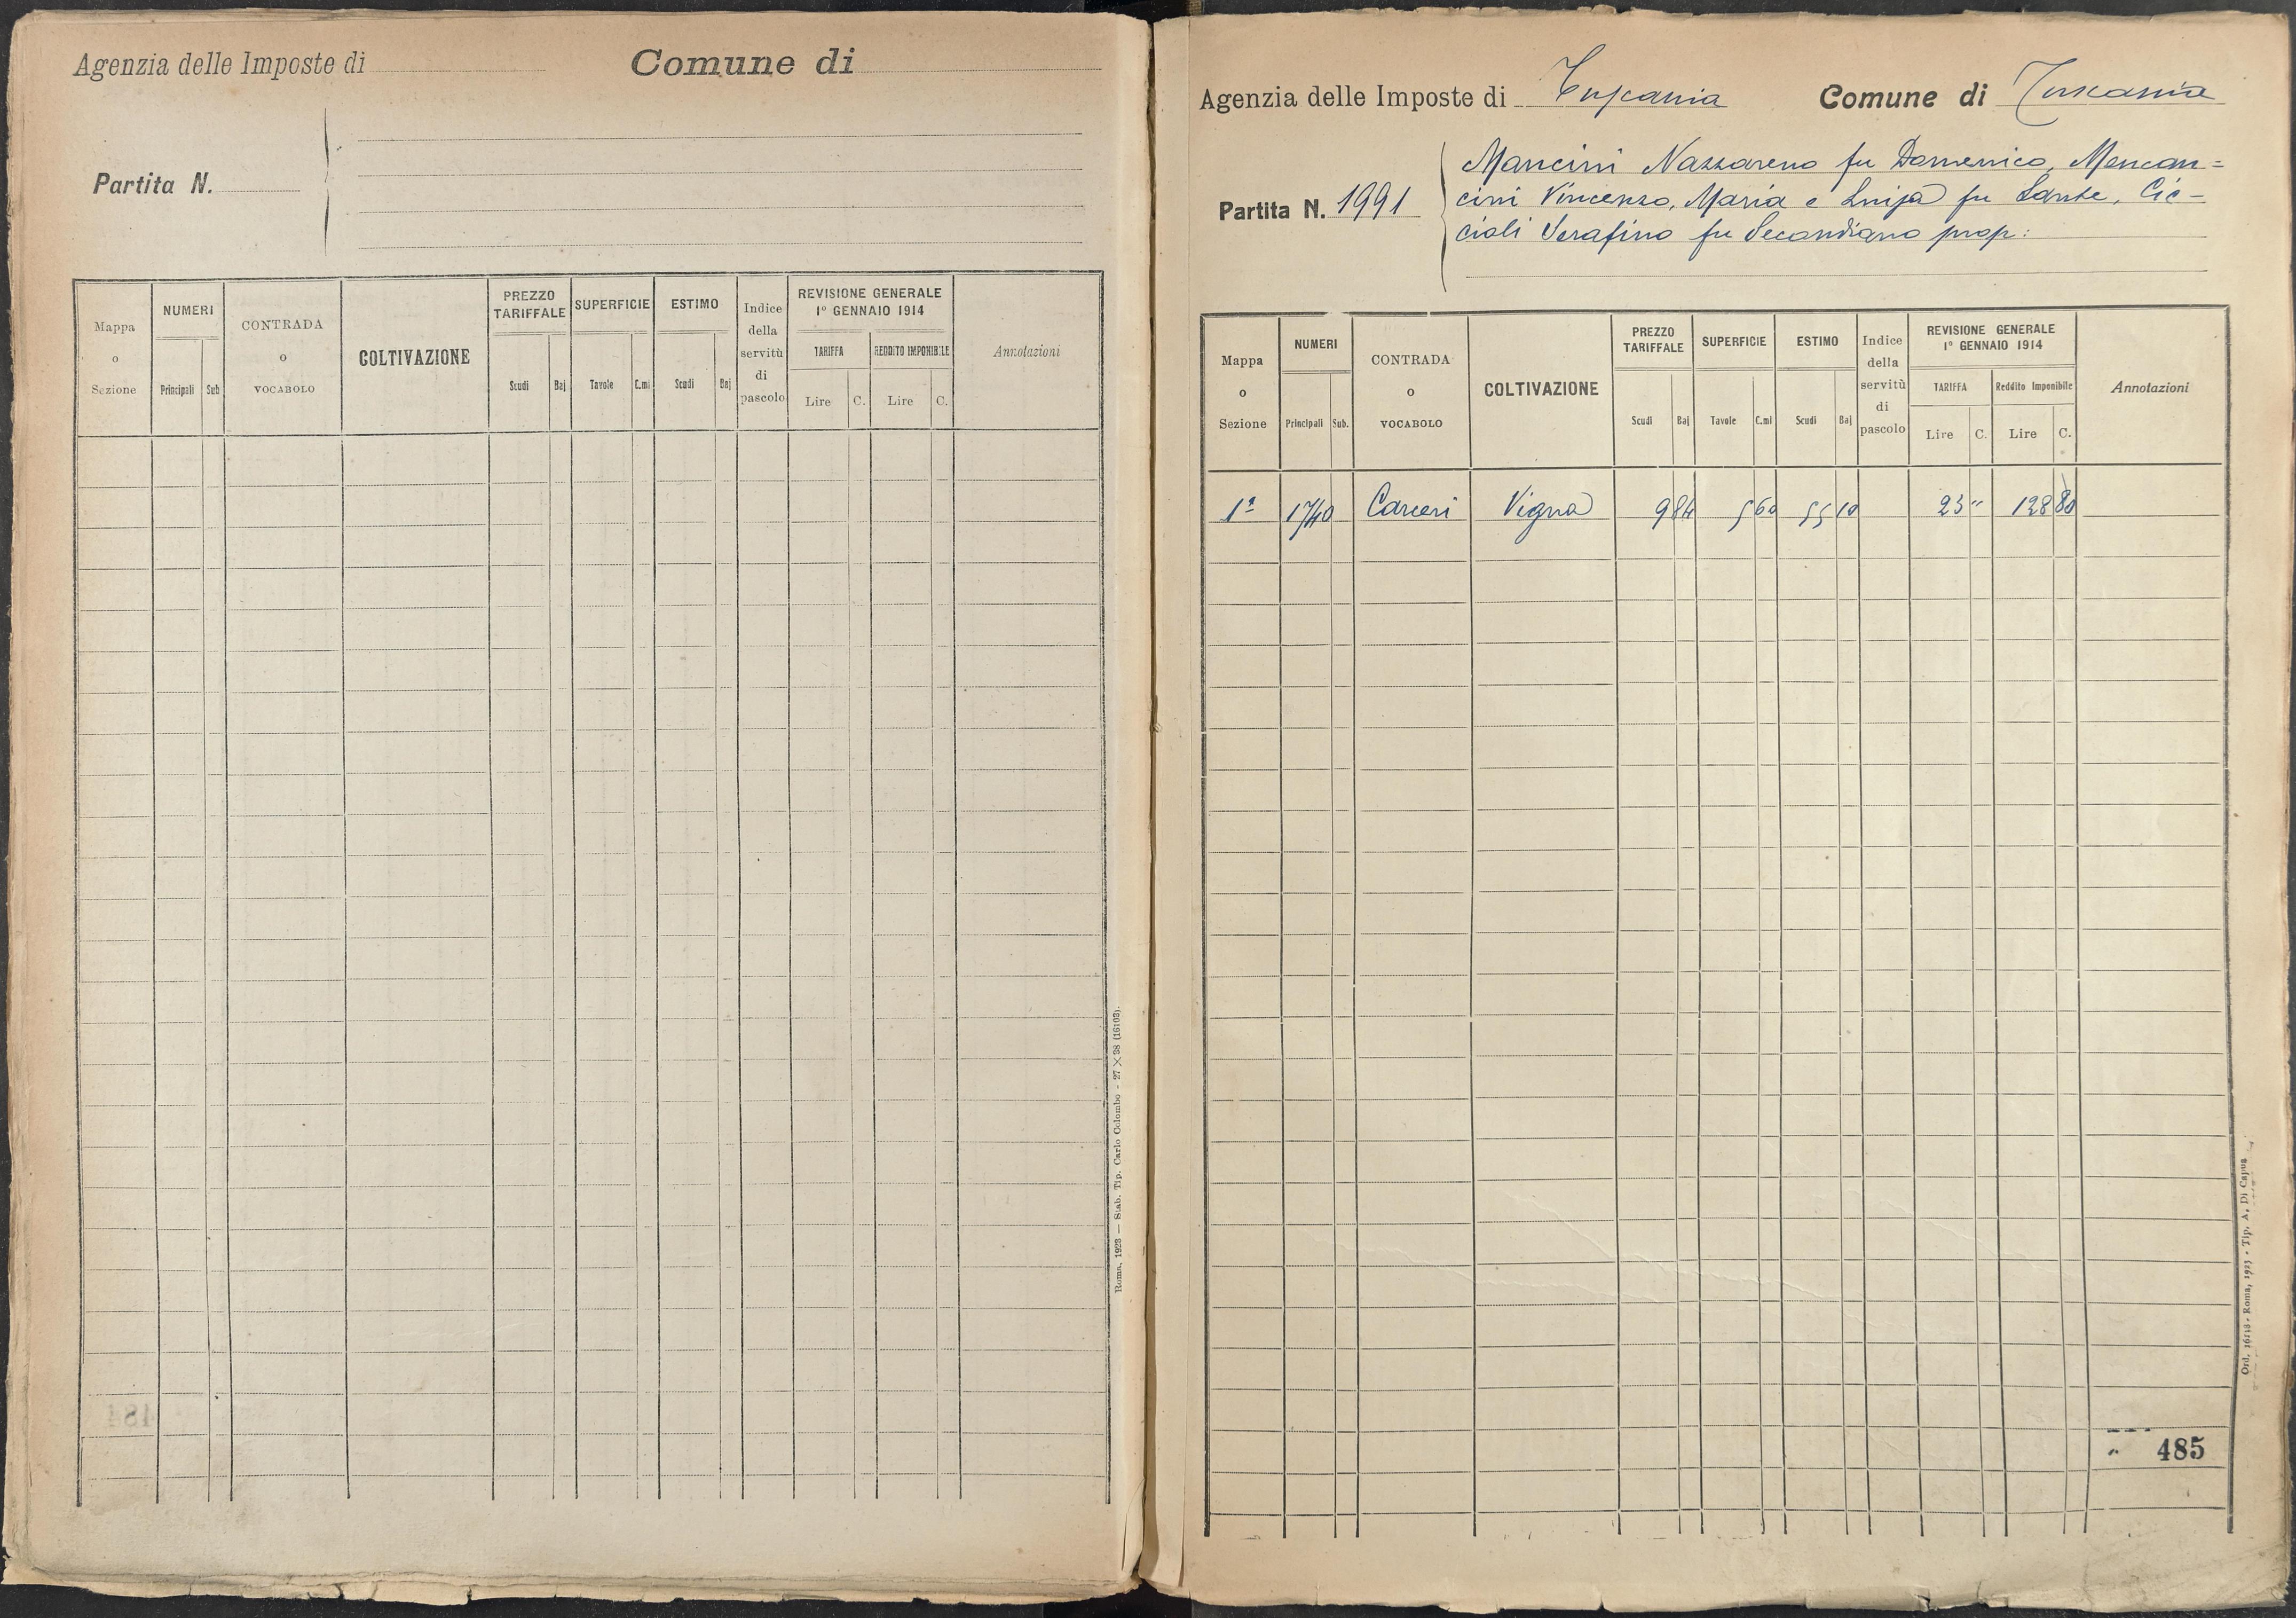 Agenzia delle Imposte di
Comune di
Partita N.
Mappa o Sezione
NUMERI
Principali Sub
CONTRADA o VOCABOLO
COLTIVAZIONE
PREZZO TARIFFALE
Scudi Baj
SUPERFICIE
Tavole C.mi
ESTIMO
Scudi Baj
Indice della servitù di pascolo
REVISIONE GENERALE
1° GENNAIO 1914
TARIFFA
Lire C.
REDDITO IMPONIBILE
Lire C.
Annotazioni
Roma, 1923 — Stab. Tip. Carlo Colombo - 27 X 38 (16103).
Agenzia delle Imposte di Tuscania Comune di Tuscania
Partita N. 1991
Mancini Nazzareno fu Domenico, Mencan=
cini Vincenzo, Maria e Luisa fu Sante, Cic-
cioli Serafino fu Secondiano prop:
Mappa o Sezione
NUMERI
Principali Sub.
CONTRADA o VOCABOLO
COLTIVAZIONE
PREZZO TARIFFALE
Scudi Baj
SUPERFICIE
Tavole C.mi
ESTIMO
Scudi Baj
Indice della servitù di pascolo
REVISIONE GENERALE
1° GENNAIO 1914
TARIFFA
Lire C.
Reddito Imponibile
Lire C.
Annotazioni
1ª 1740 Carceri Vigna 9 84 5 60 55 10 23 " 128 80
485
Ord. 16118 - Roma, 1923 - Tip. A. Di Capua